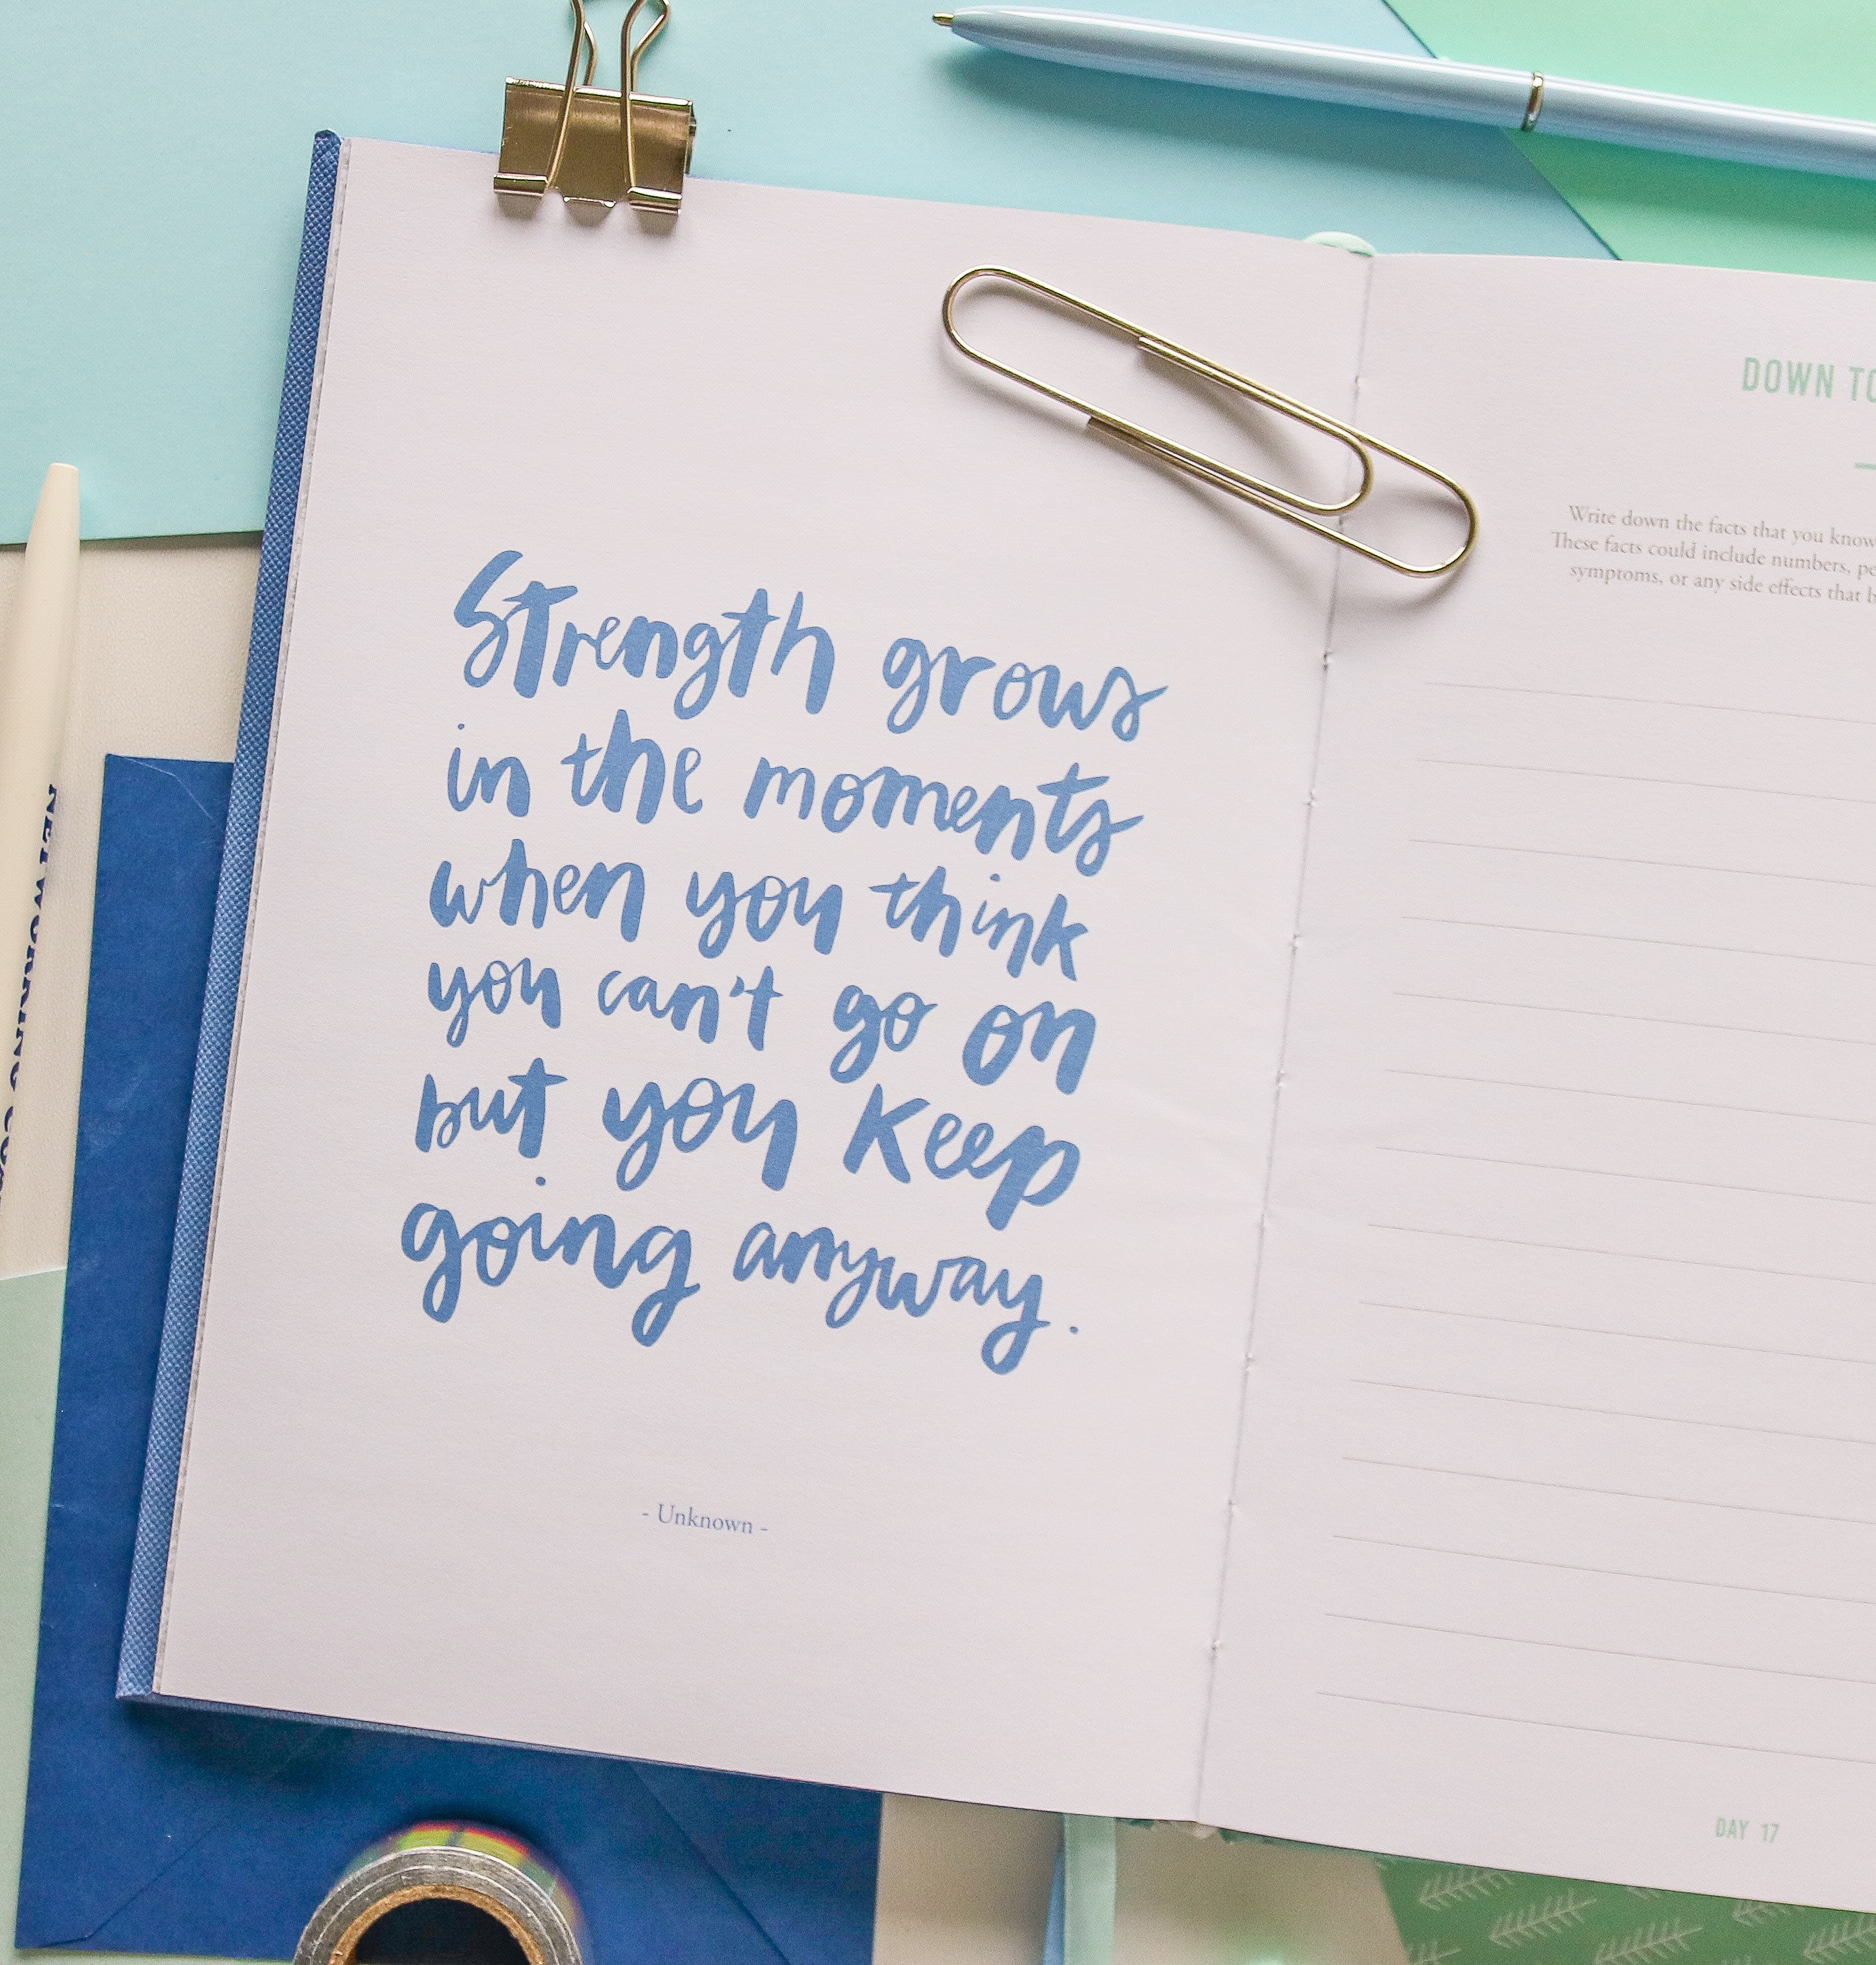 Strength grows
in the moments
when you think
you can't go on
but you keep
going anyway.
- Unknown -
DOWN TO
Write down the facts that you know
These facts could include numbers,
symptoms, or any side effects that
DAY 17
NETWORKING